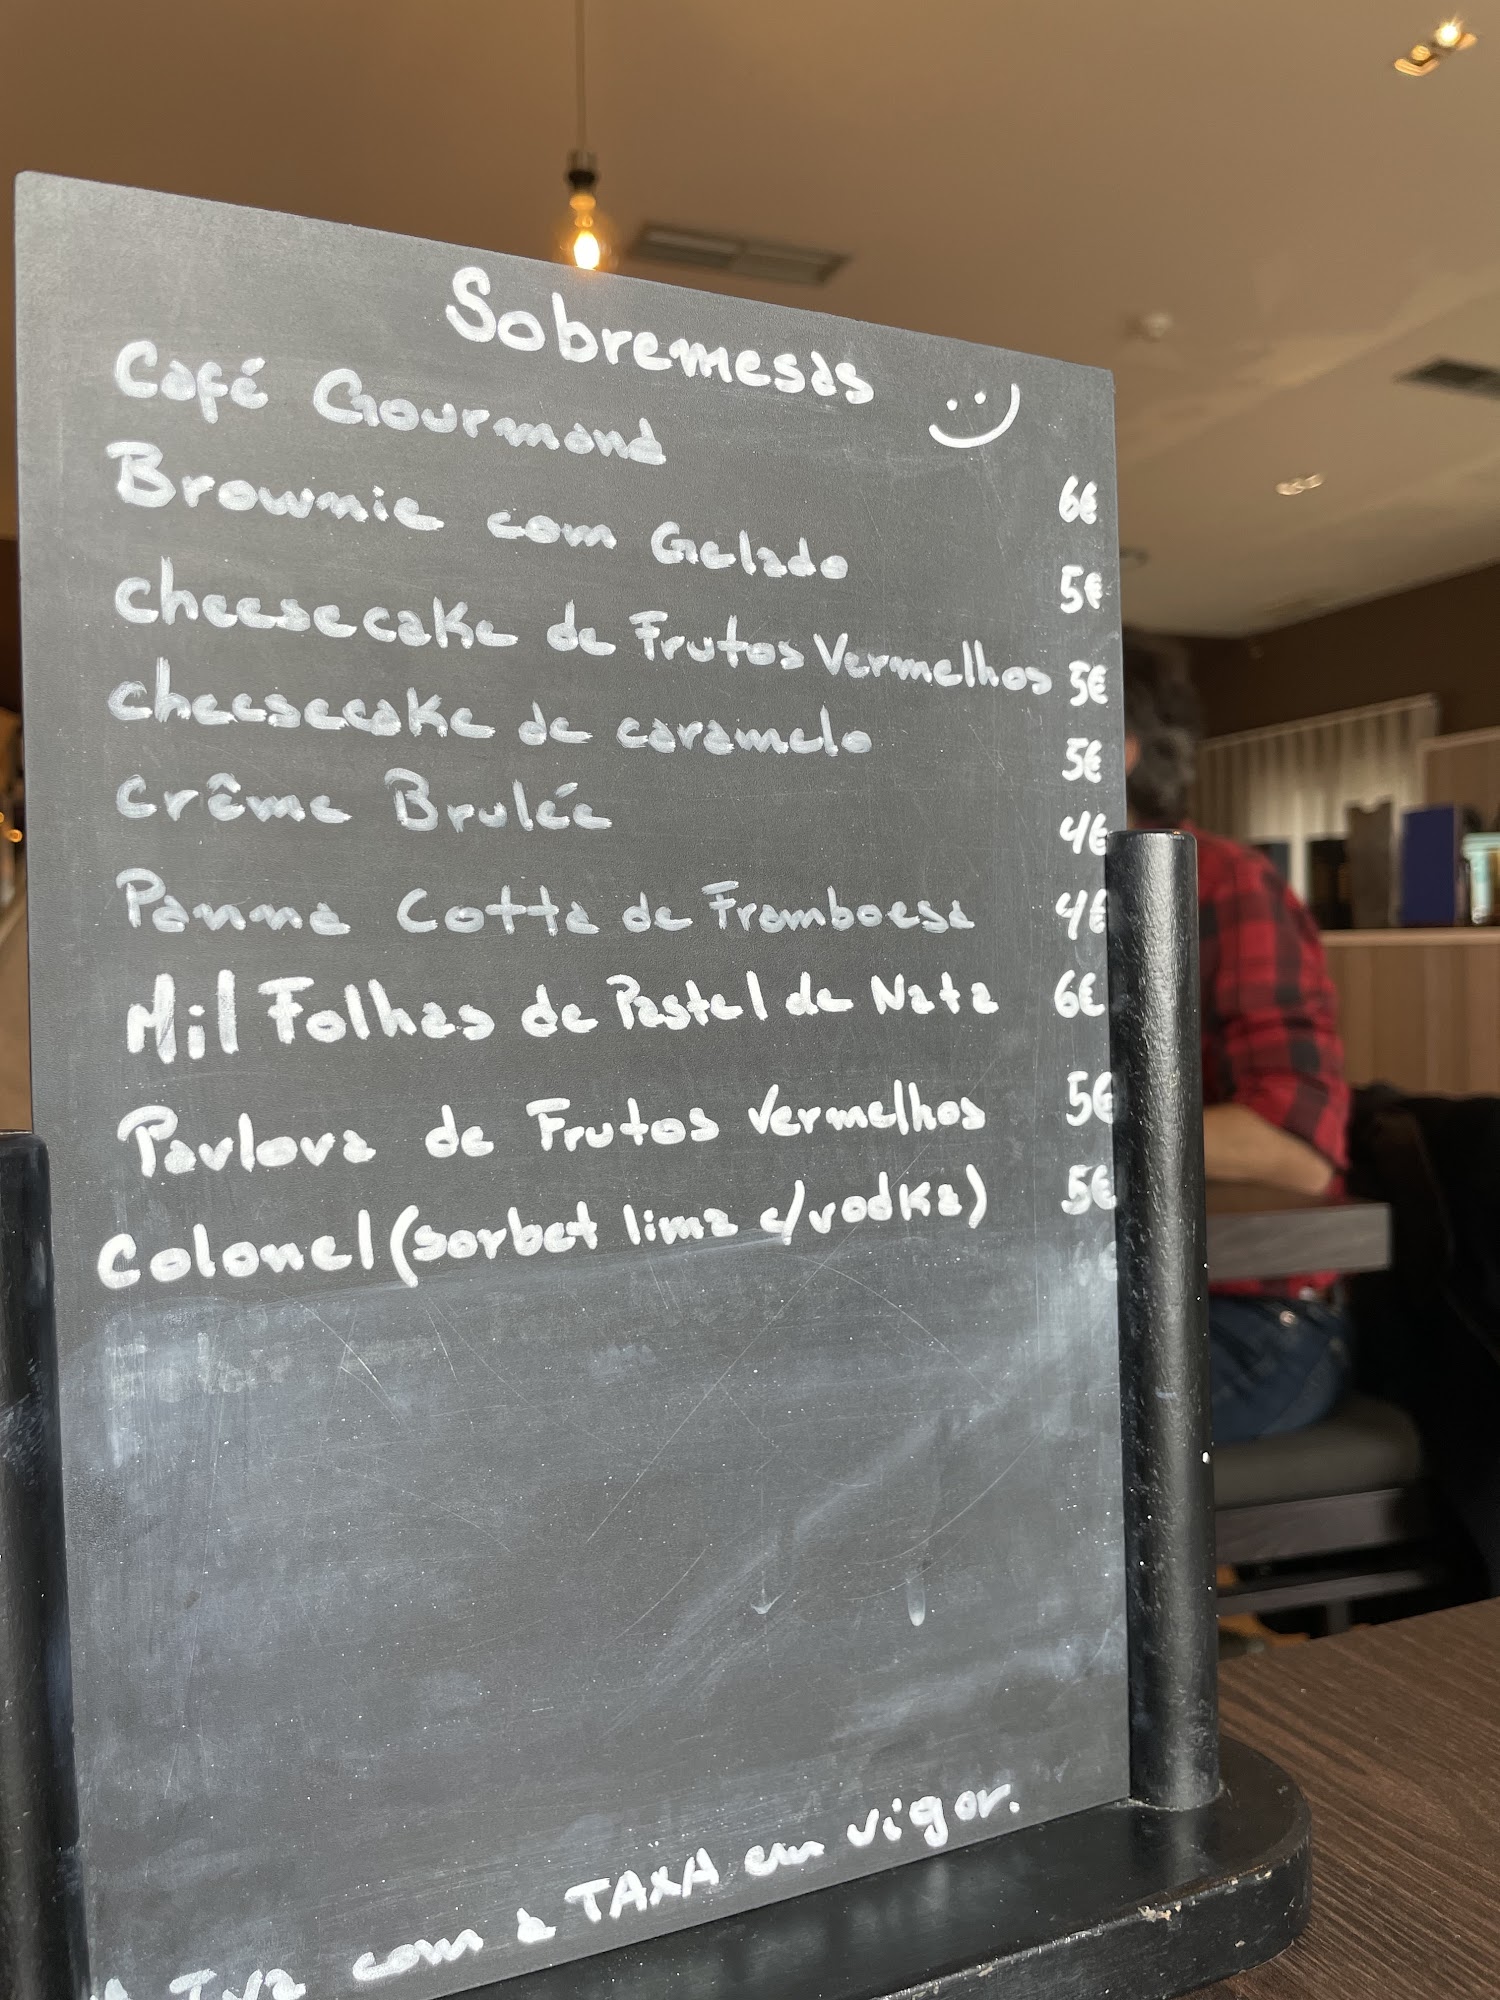 Sobremesas
Café Gourmand 6€
Brownie com Gelado 5€
cheesecake de Frutos Vermelhos 5€
cheesecake de caramelo 5€
crême Brulée 4€
Panna Cotta de Framboesa 4€
Mil Folhas de Pastel de Nata 6€
Pavlova de Frutos Vermelhos 5€
Colonel (sorbet lima c/vodka) 5€
Iva com a TAXA em vigor.